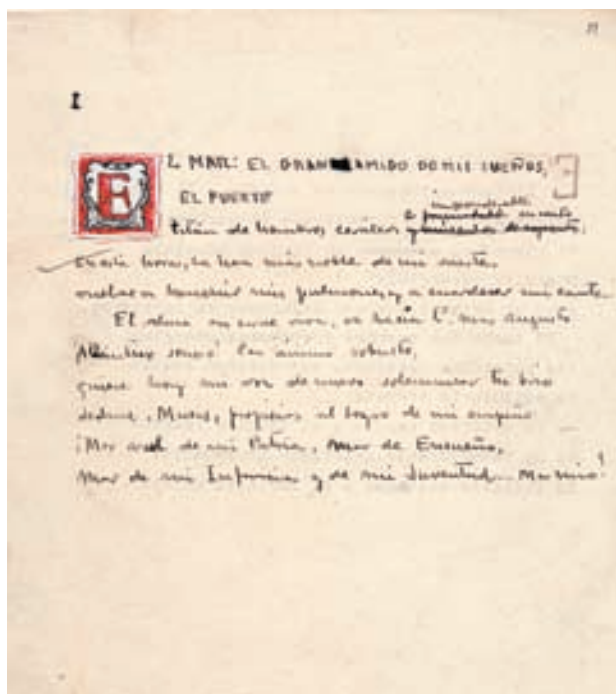 11
I
EL MAR: EL GRAN AMIGO DE MIS SUEÑOS,
EL FUERTE
imponderable
titán de hombros cerúleos e encanto:
en esta hora, la hora más noble de mi suerte,
vuelve a henchir mis pulmones y a enardecer mi canto...
El alma en carne viva, va hacia ti, mar augusto
¡Atlántico sonoro! Con ánimo robusto,
quiere hoy mi voz de nuevo solemnizar tu brío
Sedme, Musas, propicias al logro de mi empeño
¡Mar azul de mi Patria, mar de Ensueño,
Mar de mi Infancia y de mi Juventud... Mar mío!